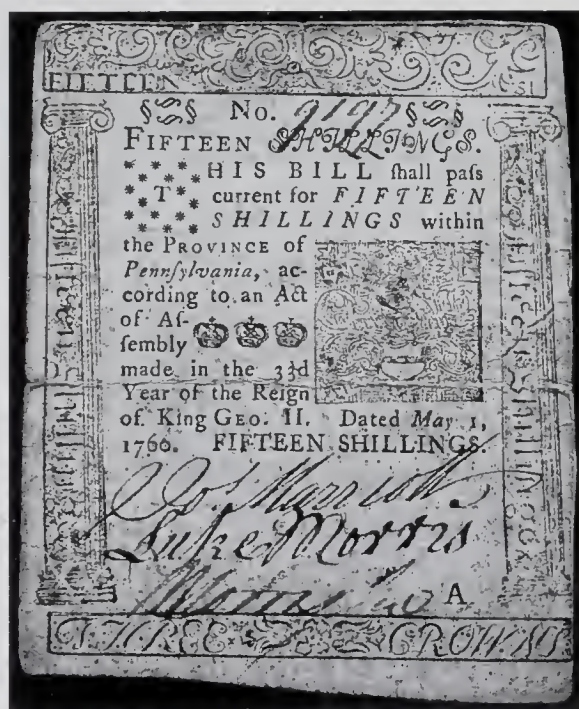 FIFTEEN
No. 9197
FIFTEEN SHILLINGS.
THIS BILL ſhall paſs
current for FIFTEEN
SHILLINGS within
the PROVINCE of
Pennſylvania, ac-
cording to an Act
of Aſ-
ſembly
made in the 33d
Year of the Reign
of King GEO. II. Dated May 1,
1760. FIFTEEN SHILLINGS.
Luke Morris
A
THREE CROWNS